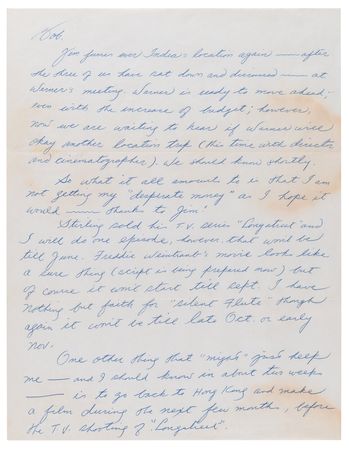 Bob,
Jim fuses over India's location again — after
the three of us have sat down and discussed — at
Warner's meeting. Warner is ready to move ahead;
even with the increase of budget; however,
now we are waiting to hear if Warner will
okay another location trip (this time with director
and cinematographer). We should know shortly.
So what it all amounts to is that I am
not getting my "desperate money" as I hope it
would — thanks to Jim!
Stirling sold his T.V. series "Longstreet" and
I will do one episode, however, that won't be
till June. Freddie Weintraub's movie look like
a sure thing (script is being prepared now) but
of course it won't start till Sept. I have
nothing but faith for "Silent Flute" though
again it won't be till late Oct. or early
Nov.
One other thing that "might" just keep
me — and I should know in about two weeks
— is to go back to Hong Kong and make
a film during the next few months, before
the T.V. shooting of "Longstreet".